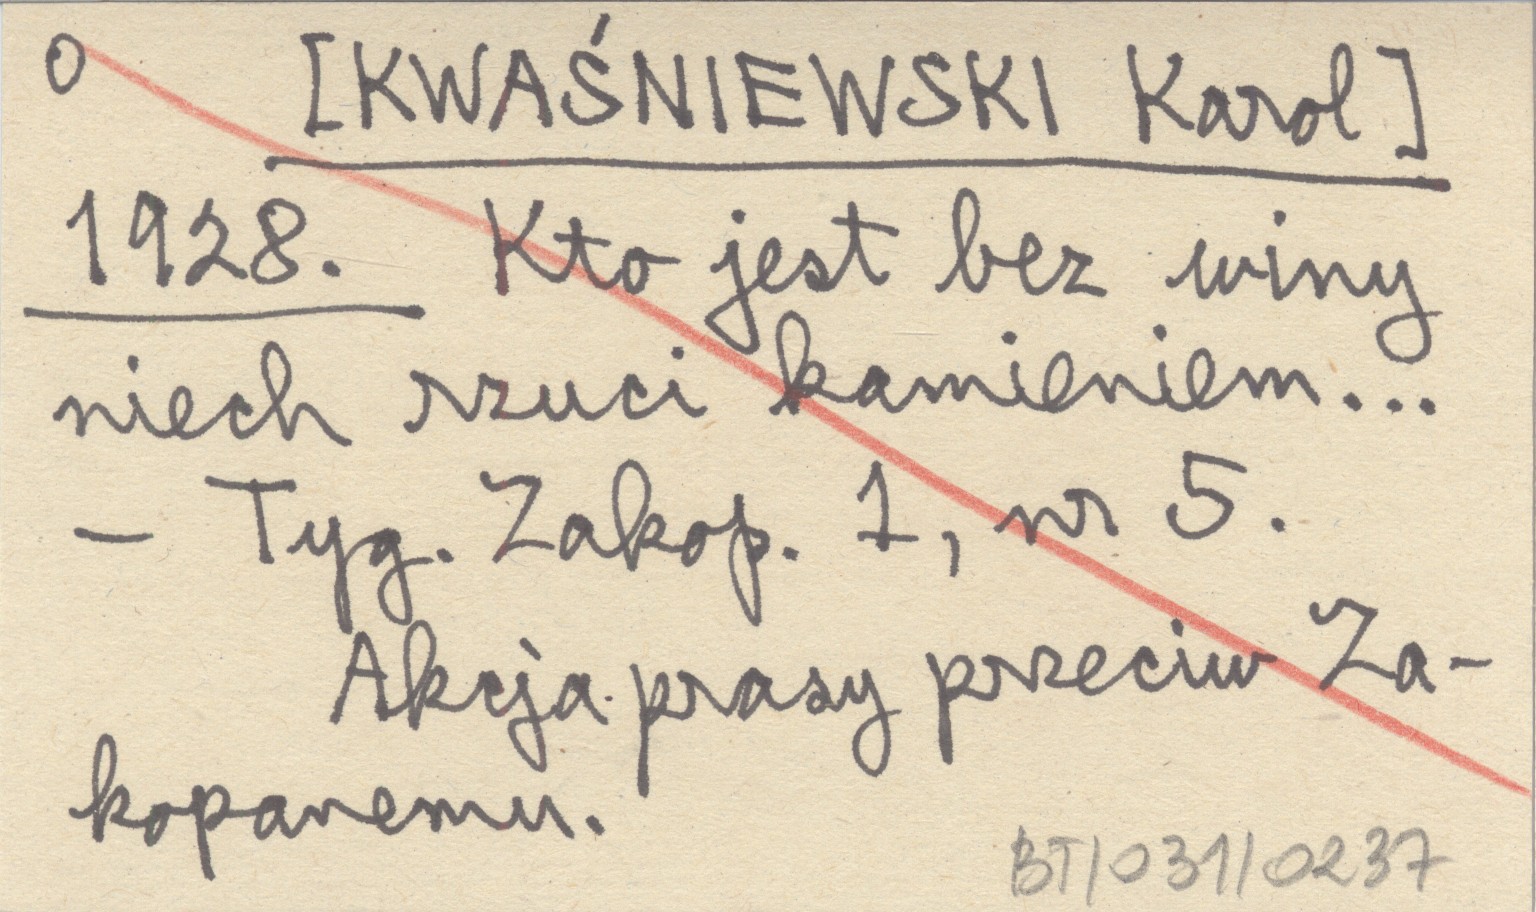 o [KWAŚNIEWSKI Karol]
1928. Kto jest bez winy
niech rzuci kamieniem...
– Tyg. Zakop. 1, nr 5.
Akcja prasy przeciw Za-
kopanemu.
BT/031/0237